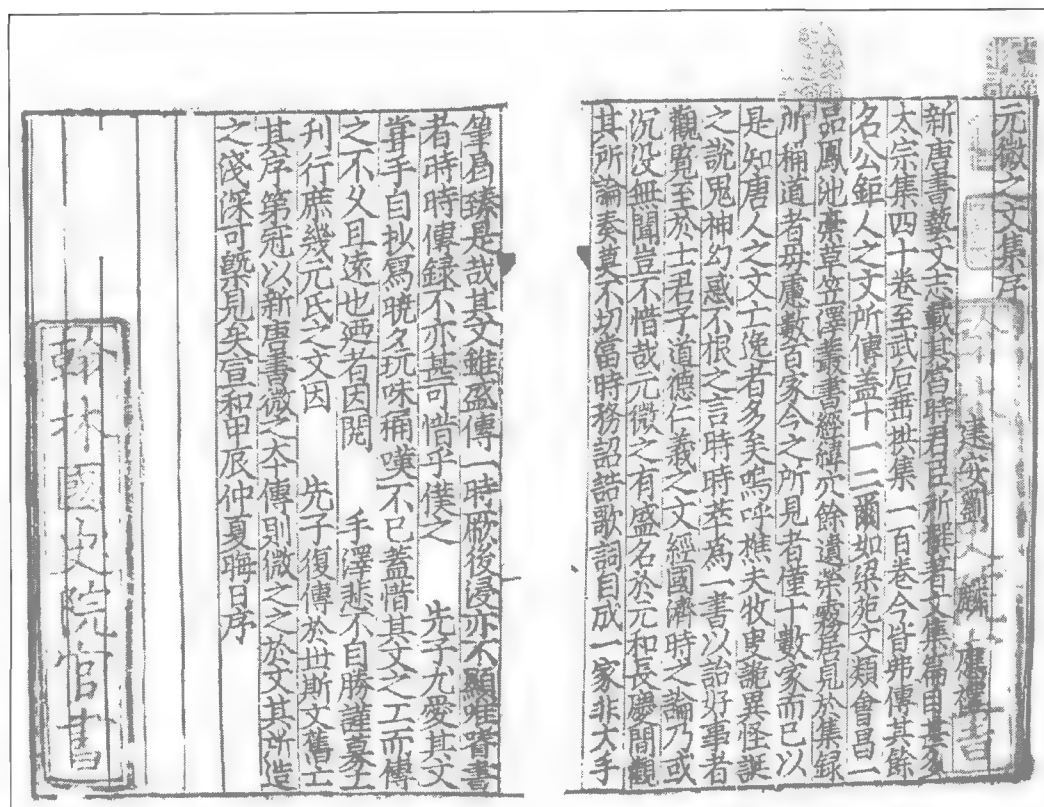 元微之文集序
建安劉 麟 應禮 書
新唐書藝文志載其當時君臣所撰著文集篇目甚多
太宗集四十卷至武后垂拱集一百卷今皆弗傳其餘
名公鉅人之文所傳盖十一二爾如梁苑文類會昌一
品鳳池藁草笠澤叢書經緯穴餘遺榮霧居見於集録
所稱道者毋慮數百家今之所見者僅十數家而已以
是知唐人之文亡逸者多矣嗚呼樵夫牧叟詭異怪誕
之説鬼神幻惑不根之言時時萃為一書以詒好事者
觀覧至於士君子道德仁義之文經國濟時之論乃或
沉没無聞豈不惜哉元微之有盛名於元和長慶間觀
其所論奏莫不切當時務詔誥歌詞自成一家非大手
筆曷臻是哉其文雖盛傳一時厥後浸亦不顯唯嗜書
者時時傳録不亦甚可惜乎僕之 先子尤愛其文
甞手自抄寫曉夕玩味稱嘆不已蓋惜其文之工而傳
之不久且遠也廼者因閱 手澤悲不自勝謹募工
刋行庶幾元氏之文因 先子復傳於丗斯文舊亡
其序第冠以新唐書微之夲傳則微之之於文其所造
之淺深可槩見矣宣和甲辰仲夏晦日序
翰林國史院官書